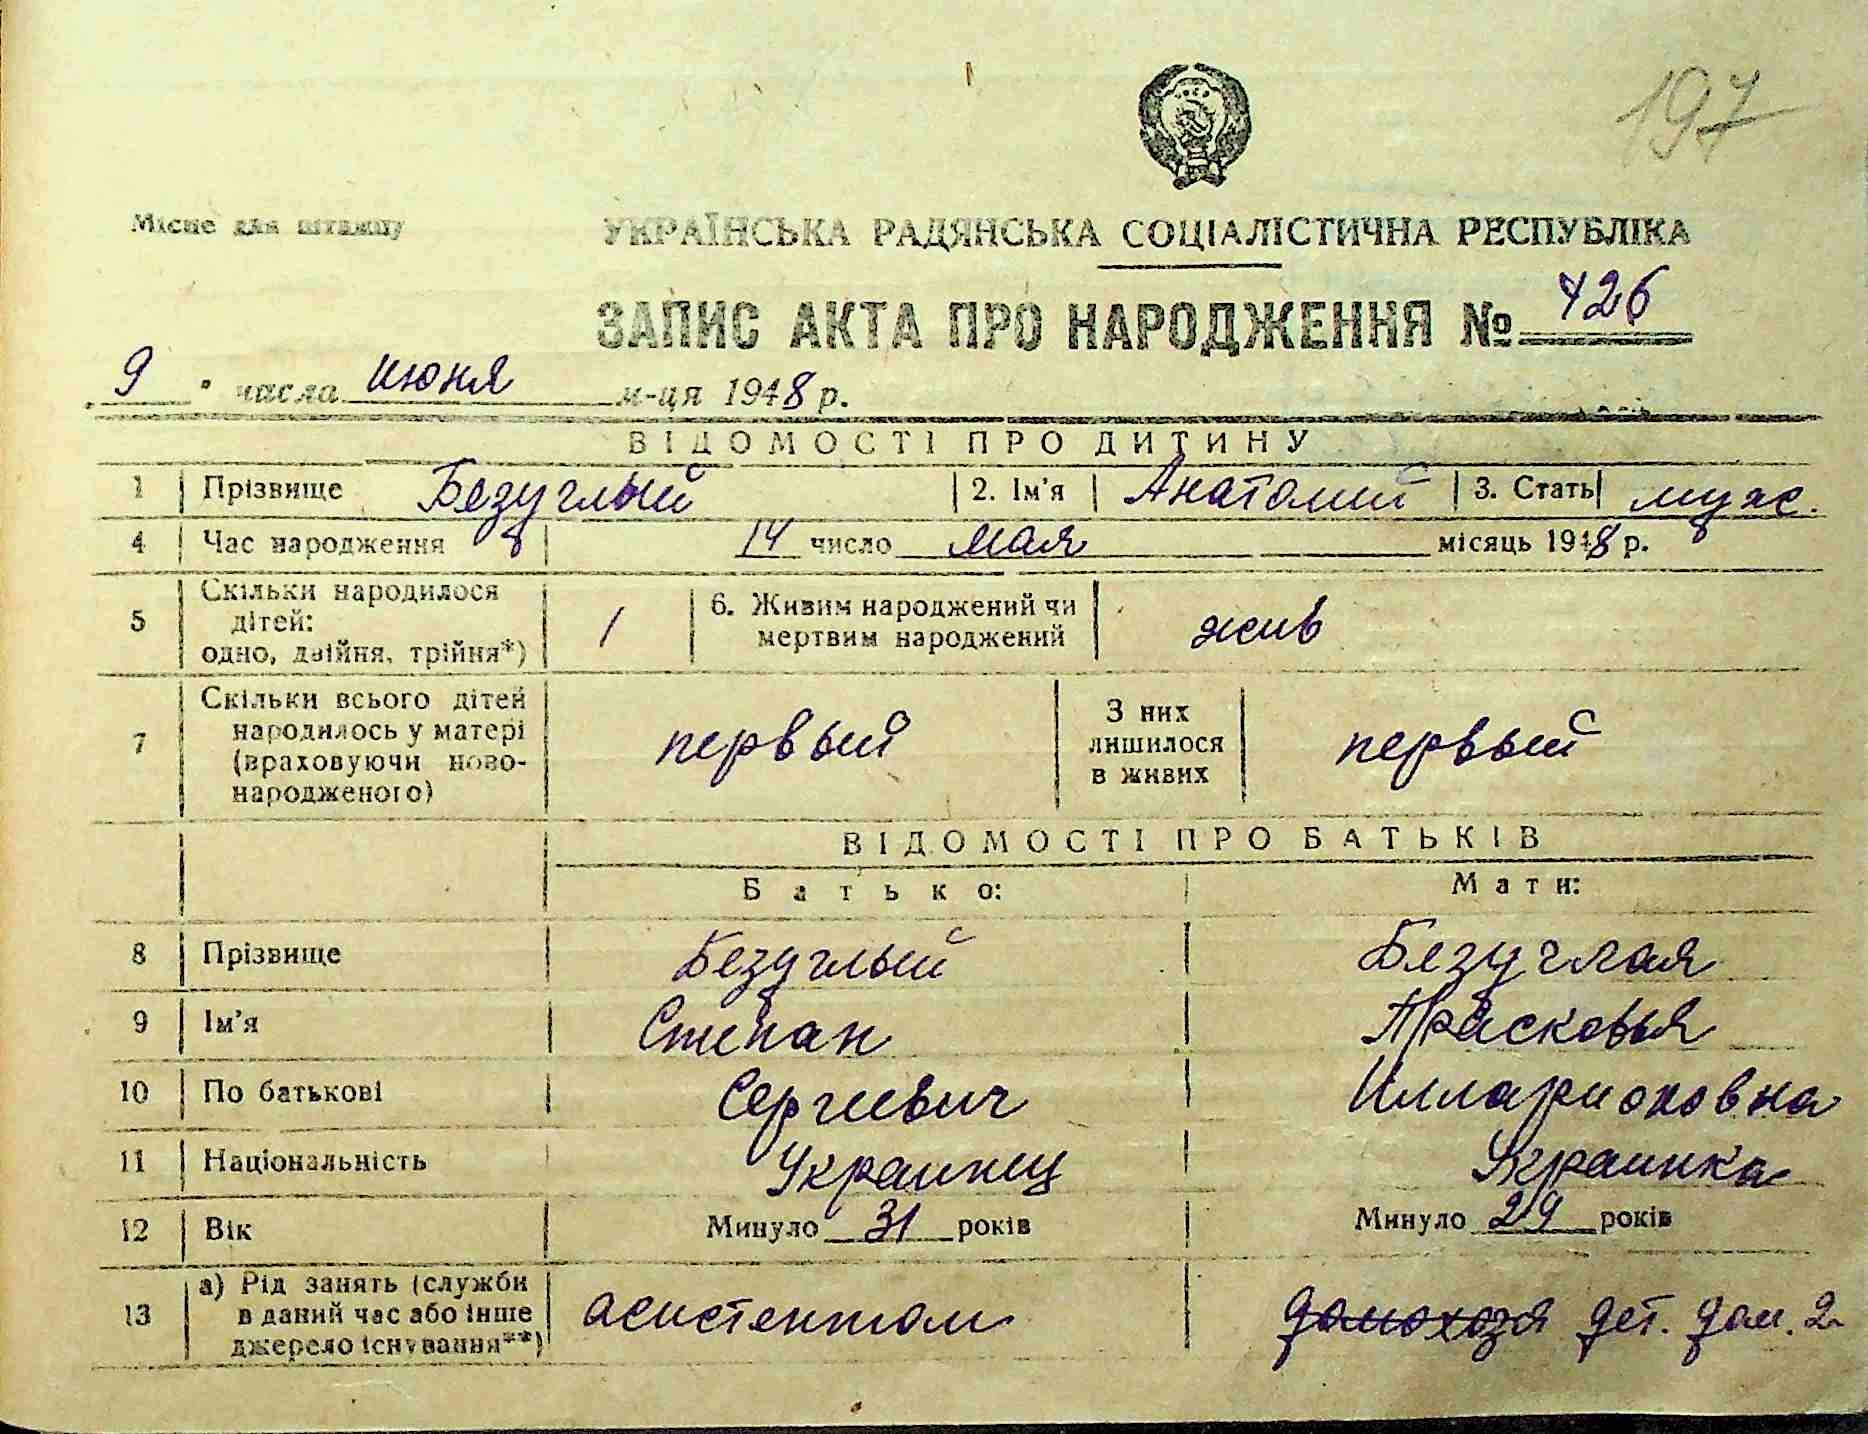 197
Місце для штампу
УКРАЇНСЬКА РАДЯНСЬКА СОЦІАЛІСТИЧНА РЕСПУБЛІКА
ЗАПИС АКТА ПРО НАРОДЖЕННЯ № 426
9 числа июня м-ця 1948 р.
ВІДОМОСТІ ПРО ДИТИНУ
1 Прізвище Безуглый 2. Ім'я Анатолий 3. Стать муж.
4 Час народження 14 число мая місяць 1948 р.
5 Скільки народилося
дітей:
одно, двійня, трійня*) 1 6. Живим народжений чи
мертвим народжений жив
7 Скільки всього дітей
народилось у матері
(враховуючи ново-
народженого) первый З них
лишилося
в живих первый
ВІДОМОСТІ ПРО БАТЬКІВ
Батько: Мати:
8 Прізвище Безуглый Безуглая
9 Ім'я Степан Прасковья
10 По батькові Сергиевич Илларионовна
11 Національність Украинец Украинка
12 Вік Минуло 31 років Минуло 29 років
13 а) Рід занять (служби
в даний час або інше
джерело існування**) асистентом домохозя дет. дом. 2